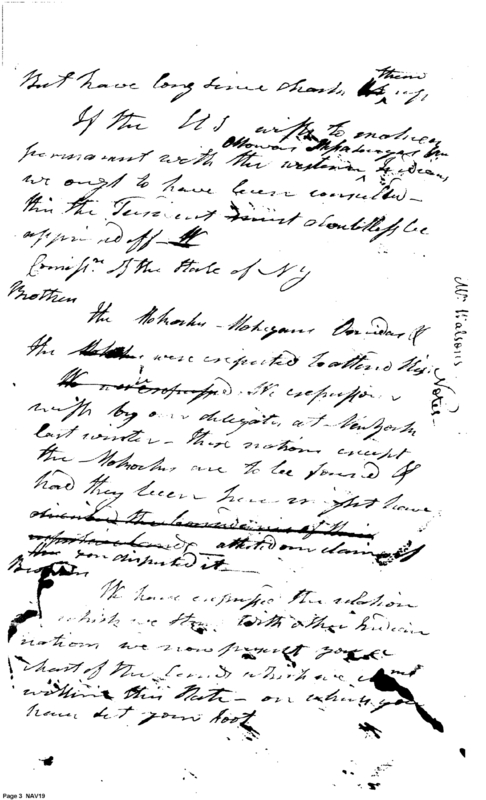 But have long since chased them off
If the U S wish to make
Ottowas
permanent with the western Indians
we ought to have been consulted -
this the President must doubtless be
apprised off
Comissrs. of the State of NY
Brothers
The Mohawks - Mohegans Oneidas &
the were expected to attend this
We expressed
wish by our delegates at New York
last winter - these nations except
the Mohawks are to be found &
had they been here might have
attested our claim if
you disputed it -
Brothers
We have expressed the relation
which we stand with other Indian
nations we now present you a
chart of the Lands which we claim
within this State - on which you
have set your foot
Mr. Watsons Notes -
Page 3 NAV19